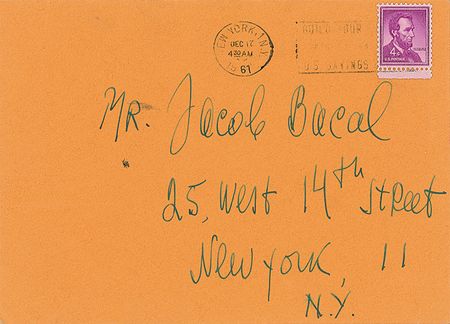 NEW YORK, N.Y.
DEC 17
4 30 AM
1961
BUILD YOUR
U.S. SAVINGS
4¢
U.S. POSTAGE
Mr. Jacob Bacal
25, West 14th Street
New York, 11
N.Y.